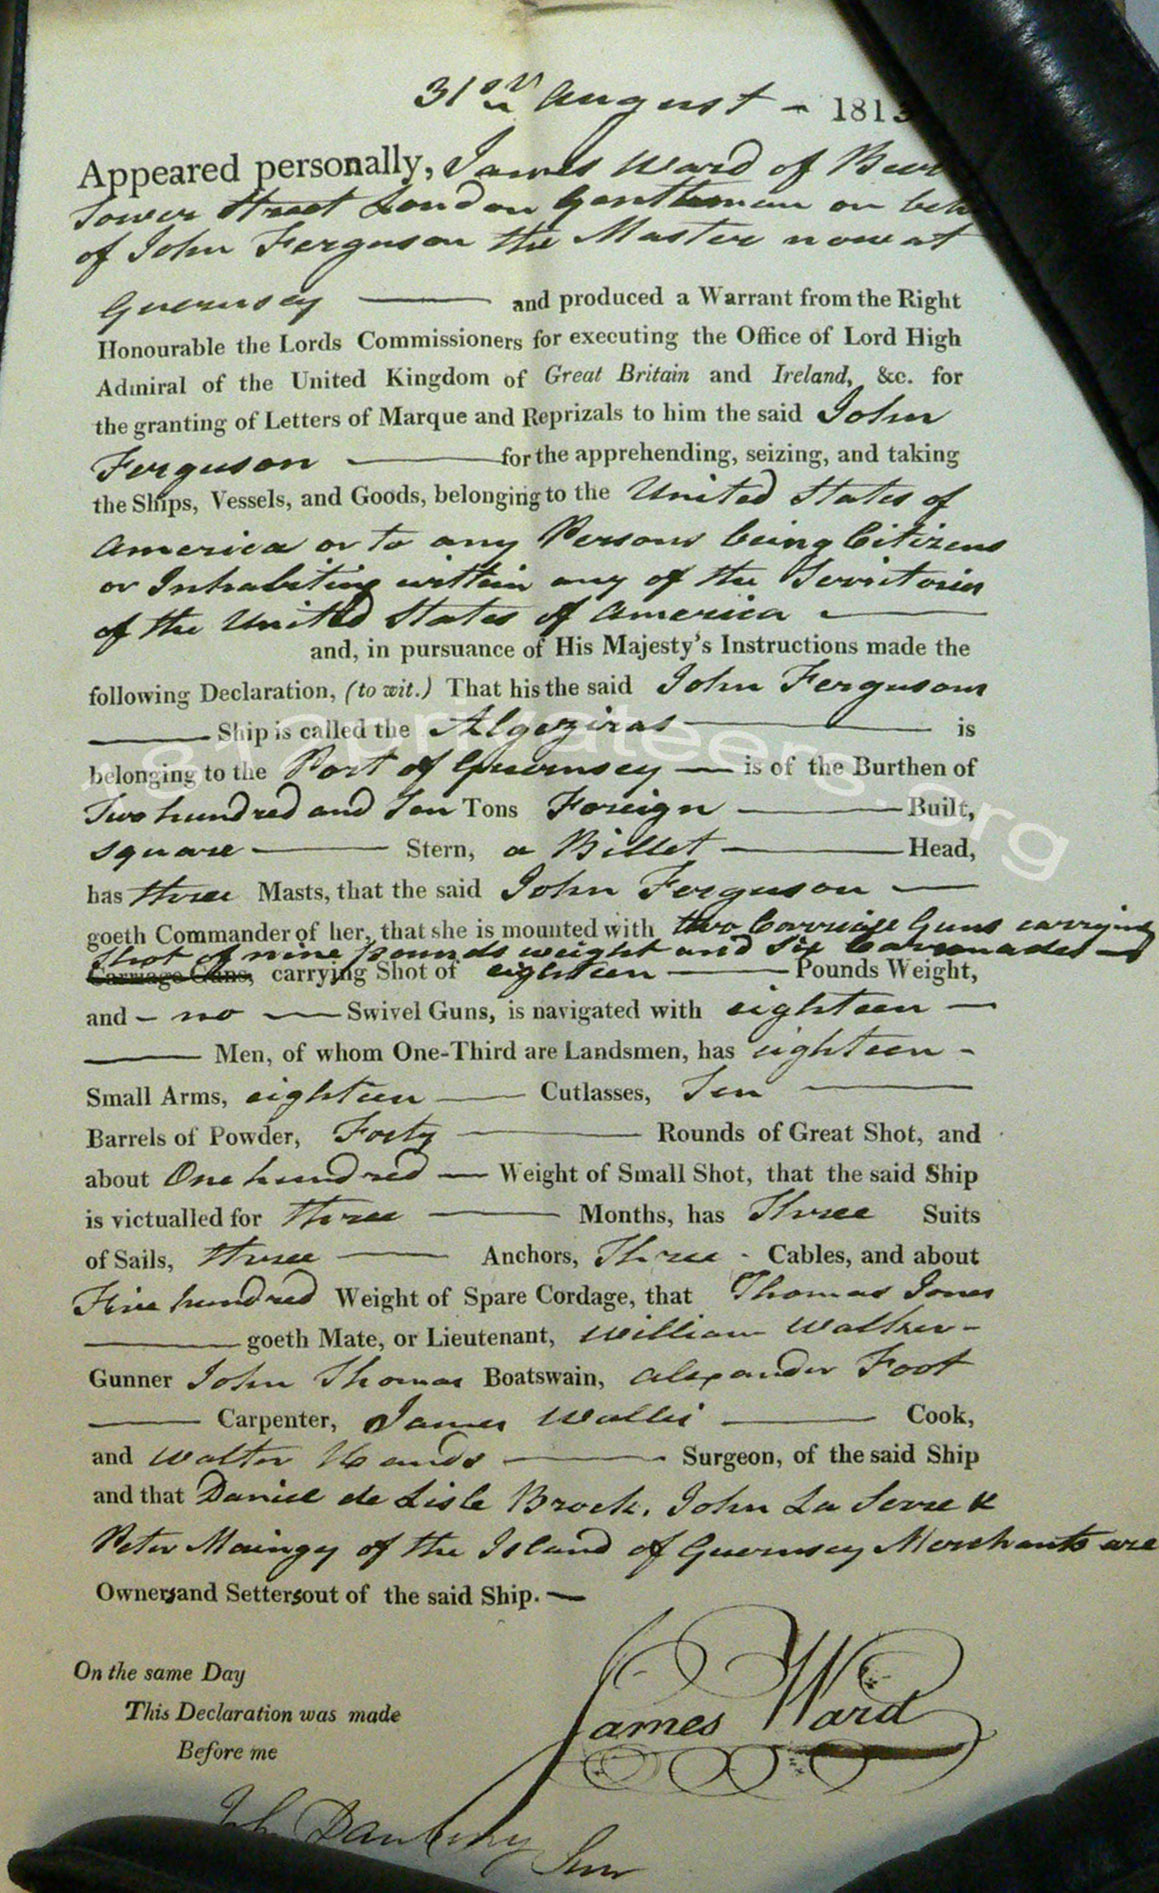 31st August - 1813
Appeared personally, James Ward of
Tower Street London Gentleman on
of John Ferguson the Master now at
Guernsey and produced a Warrant from the Right
Honourable the Lords Commissioners for executing the Office of Lord High
Admiral of the United Kingdom of Great Britain and Ireland, &c. for
the granting of Letters of Marque and Reprizals to him the said John
Ferguson for the apprehending, seizing, and taking
the Ships, Vessels, and Goods, belonging to the United States of
America or to any Persons being Citizens
or Inhabiting within any of the Territories
of the United States of America
and, in pursuance of His Majesty's Instructions made the
following Declaration, (to wit.) That his the said John Fergusons
Ship is called the Algeziras is
belonging to the Port of Guernsey is of the Burthen of
Two hundred and Ten Tons Foreign Built,
square Stern, a Billet Head,
has three Masts, that the said John Ferguson
goeth Commander of her, that she is mounted with two Carriage Guns carrying
Shot of nine pounds weight and Six Carronades
Carriage Guns, carrying Shot of eighteen Pounds Weight,
and - no Swivel Guns, is navigated with eighteen
Men, of whom One-Third are Landsmen, has eighteen -
Small Arms, eighteen Cutlasses, Ten
Barrels of Powder, Forty Rounds of Great Shot, and
about One hundred Weight of Small Shot, that the said Ship
is victualled for three Months, has Three Suits
of Sails, three Anchors, Three - Cables, and about
Five hundred Weight of Spare Cordage, that Thomas Jones
goeth Mate, or Lieutenant, William Walker -
Gunner John Thomas Boatswain, Alexander Foot
Carpenter, James Wallis Cook,
and Walter Hands Surgeon, of the said Ship
and that Daniel de Lisle Brock, John La Serre &
Peter Maingy of the Island of Guernsey Merchants are
Owners and Setters out of the said Ship.
James Ward
On the same Day
This Declaration was made
Before me
John Daubeny
Surr
1812privateers.org